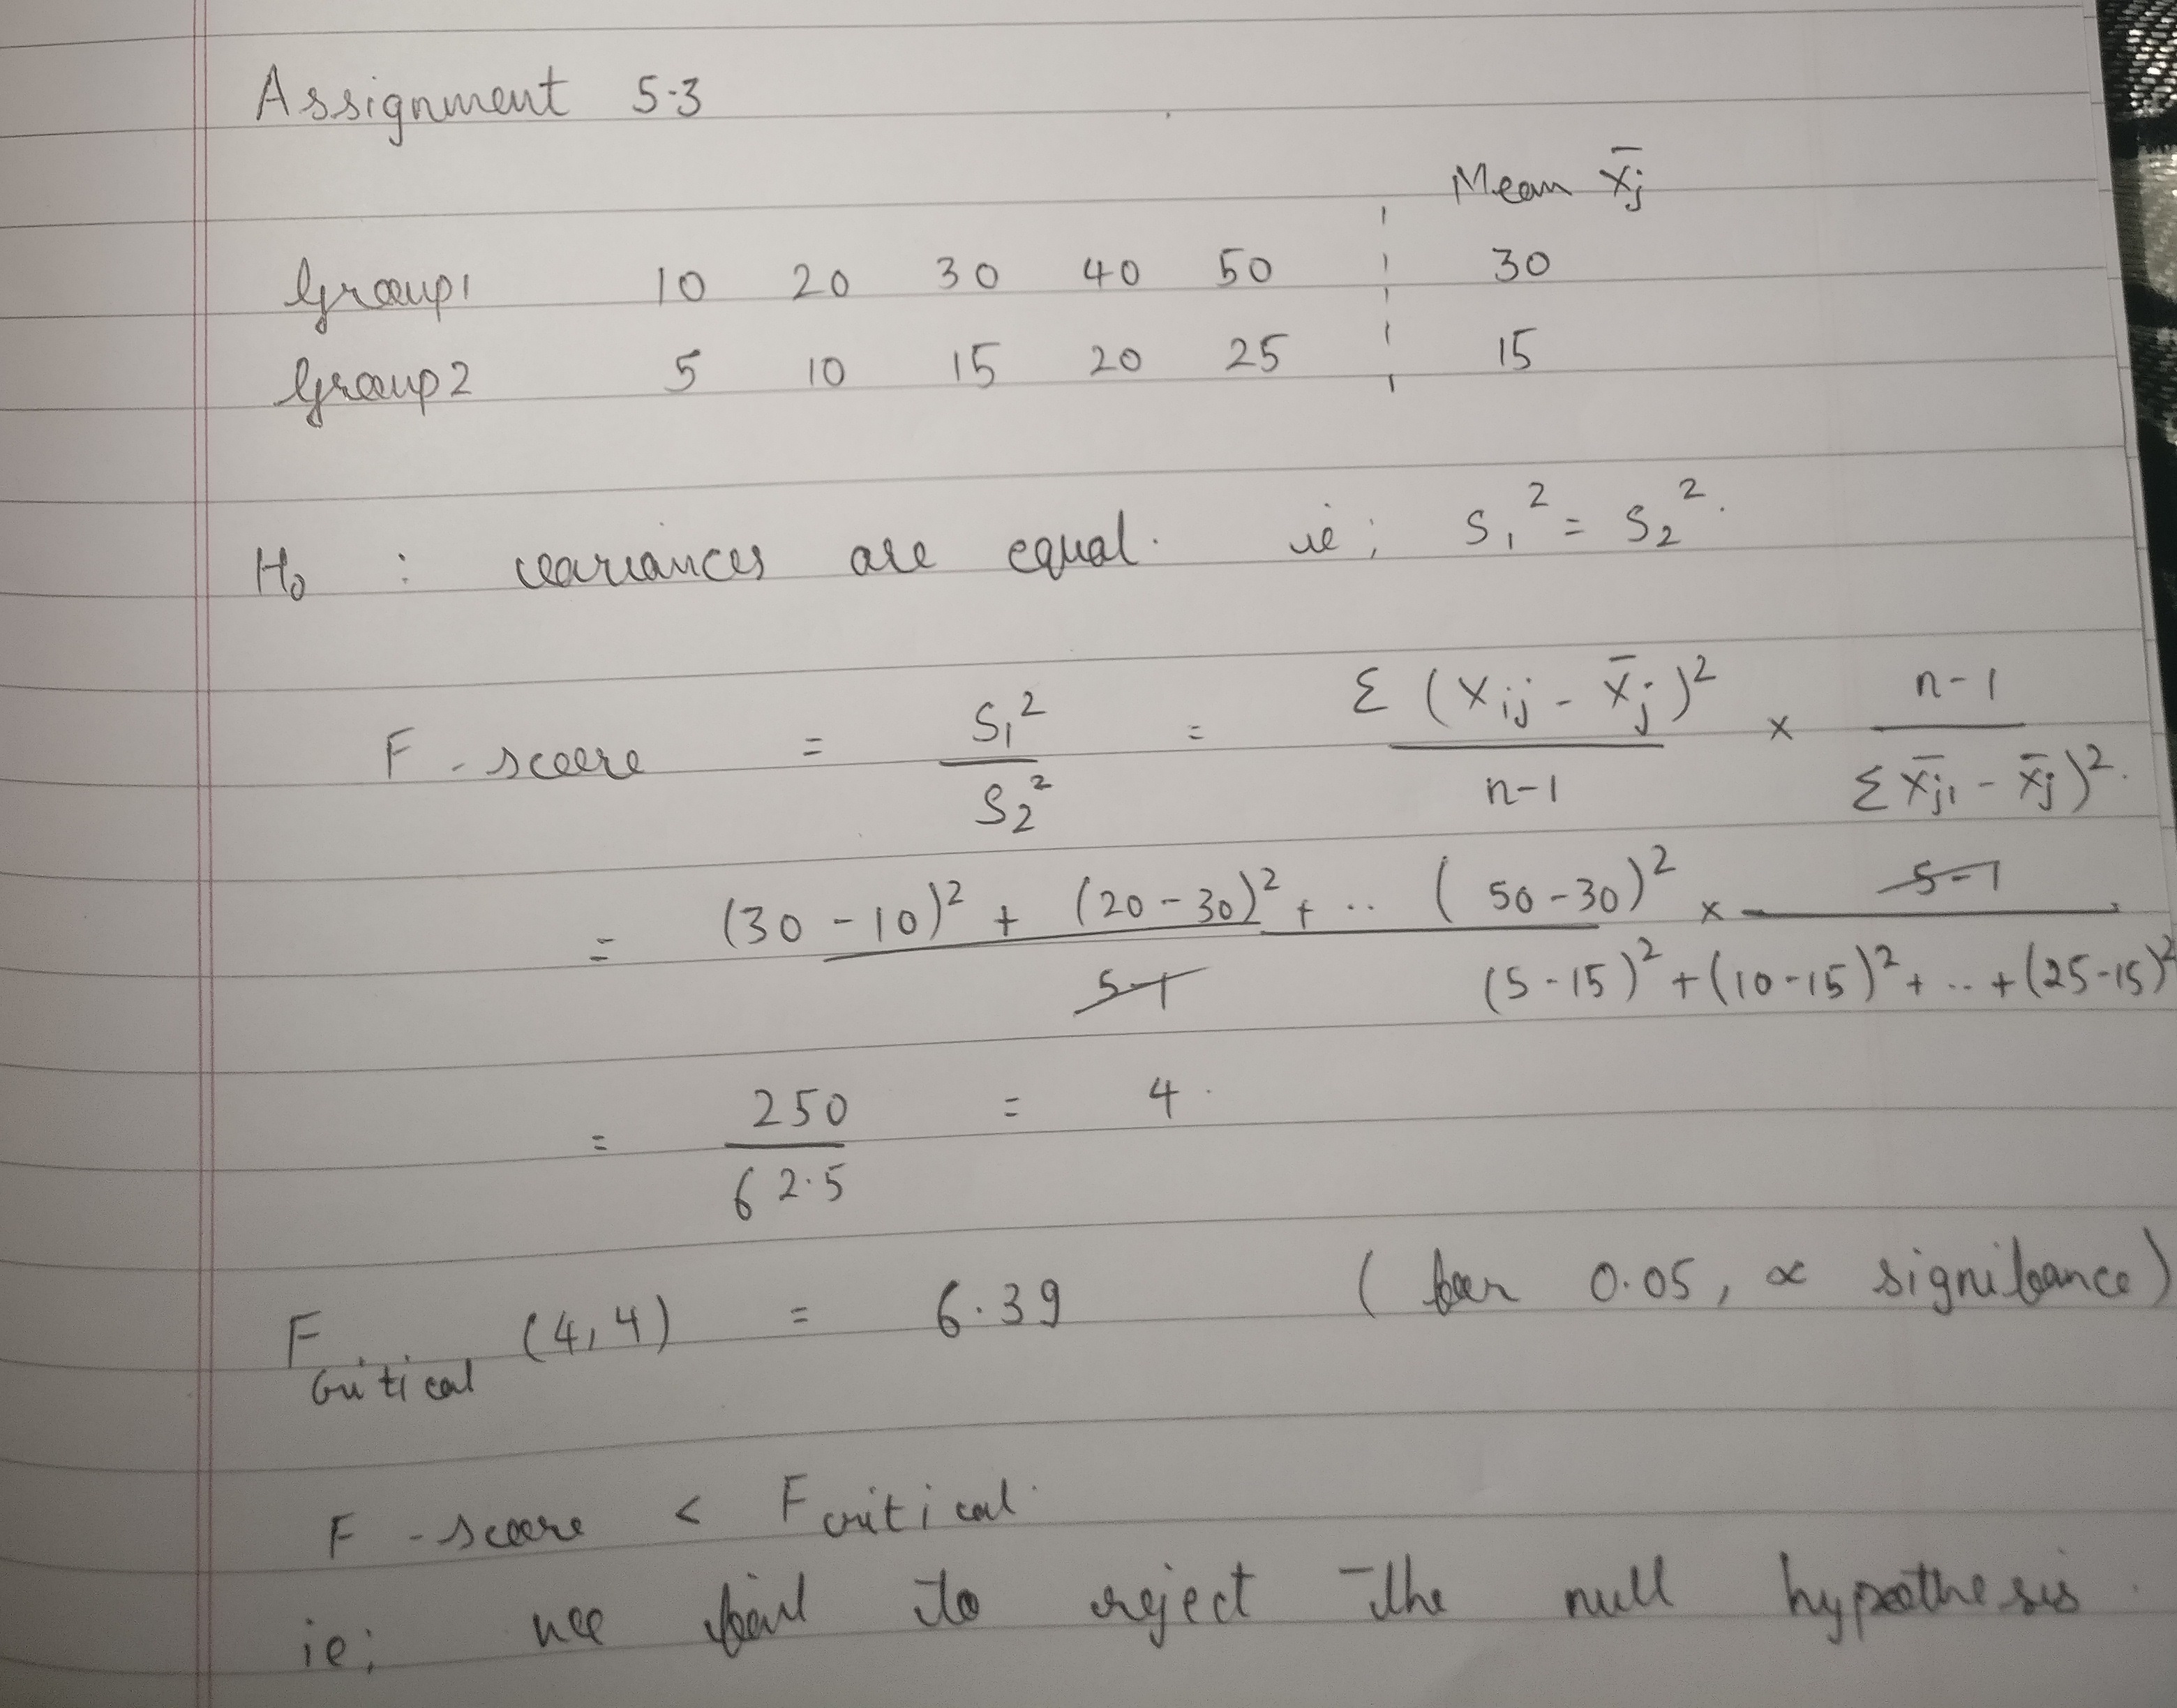 Assignment 5.3
Mean x̄j
Group1 10 20 30 40 50 30
Group2 5 10 15 20 25 15
H₀ : variances are equal. ie; S₁² = S₂².
F - score = S₁² / S₂² = Σ (xij - x̄j)² / n-1 × n-1 / Σ x̄ji - x̄j)².
= (30 - 10)² + (20 - 30)² + .. (50 - 30)² / 5-1 × 5-1 / (5-15)² + (10-15)² + .. + (25-15)²
= 250 / 62.5 = 4.
F critical (4,4) = 6.39 ( for 0.05, ∝ signifance)
F - score < F critical.
ie; we fail to reject the null hypothesis.